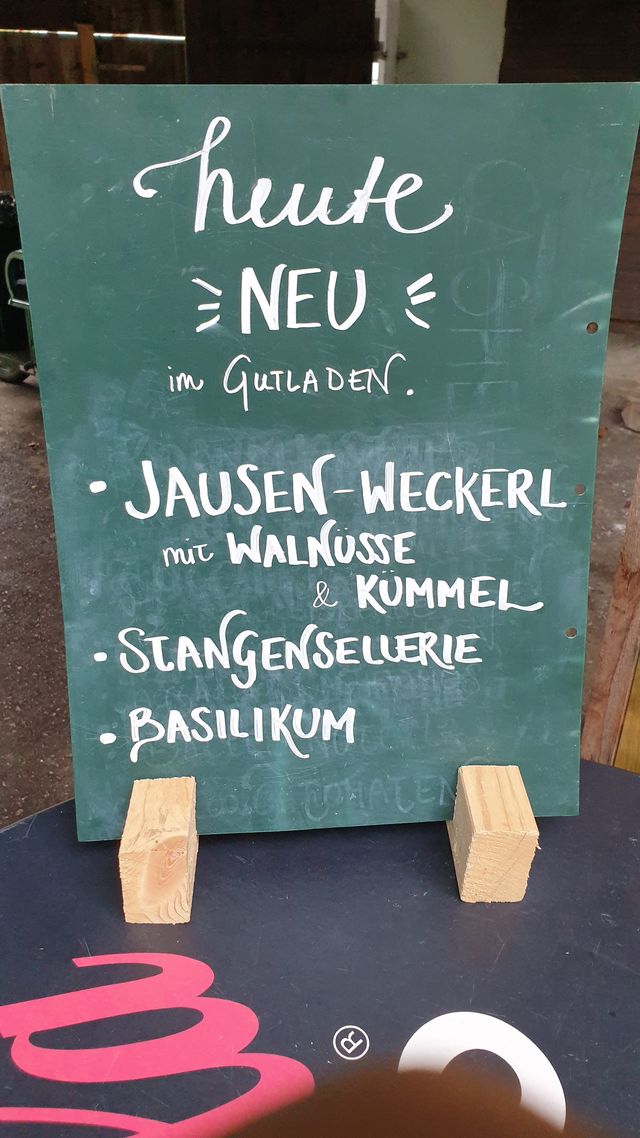 heute
NEU
im GUTLADEN.
• JAUSEN-WECKERL
mit WALNÜSSE
& KÜMMEL
• STANGENSELLERIE
• BASILIKUM
TOMATEN
®